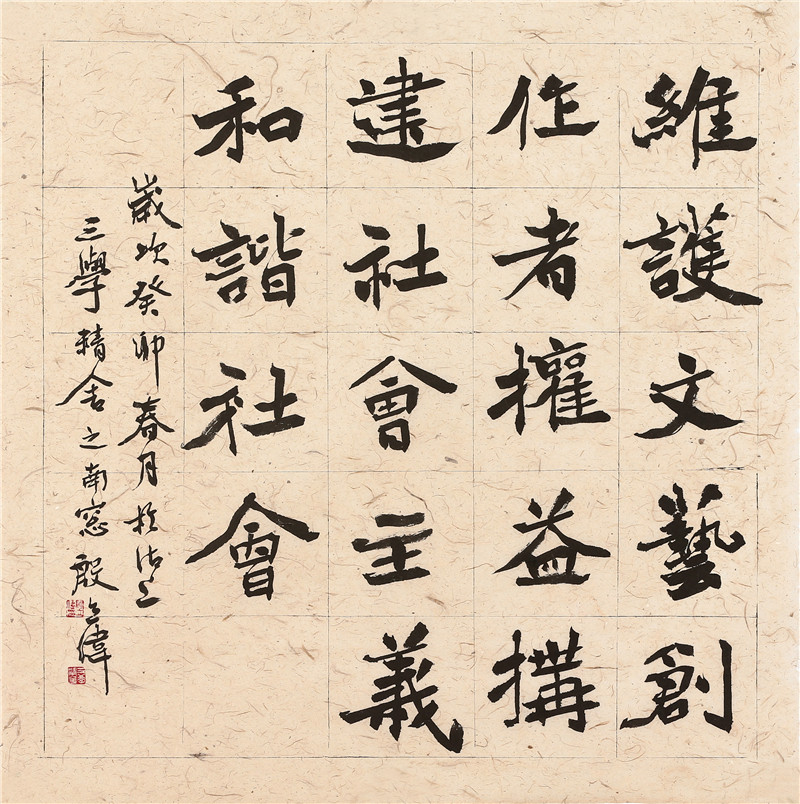 維護文藝創
作者權益構
建社會主義
和諧社會
歲次癸卯春月於沽上
三學精舍之南窓 殷偉